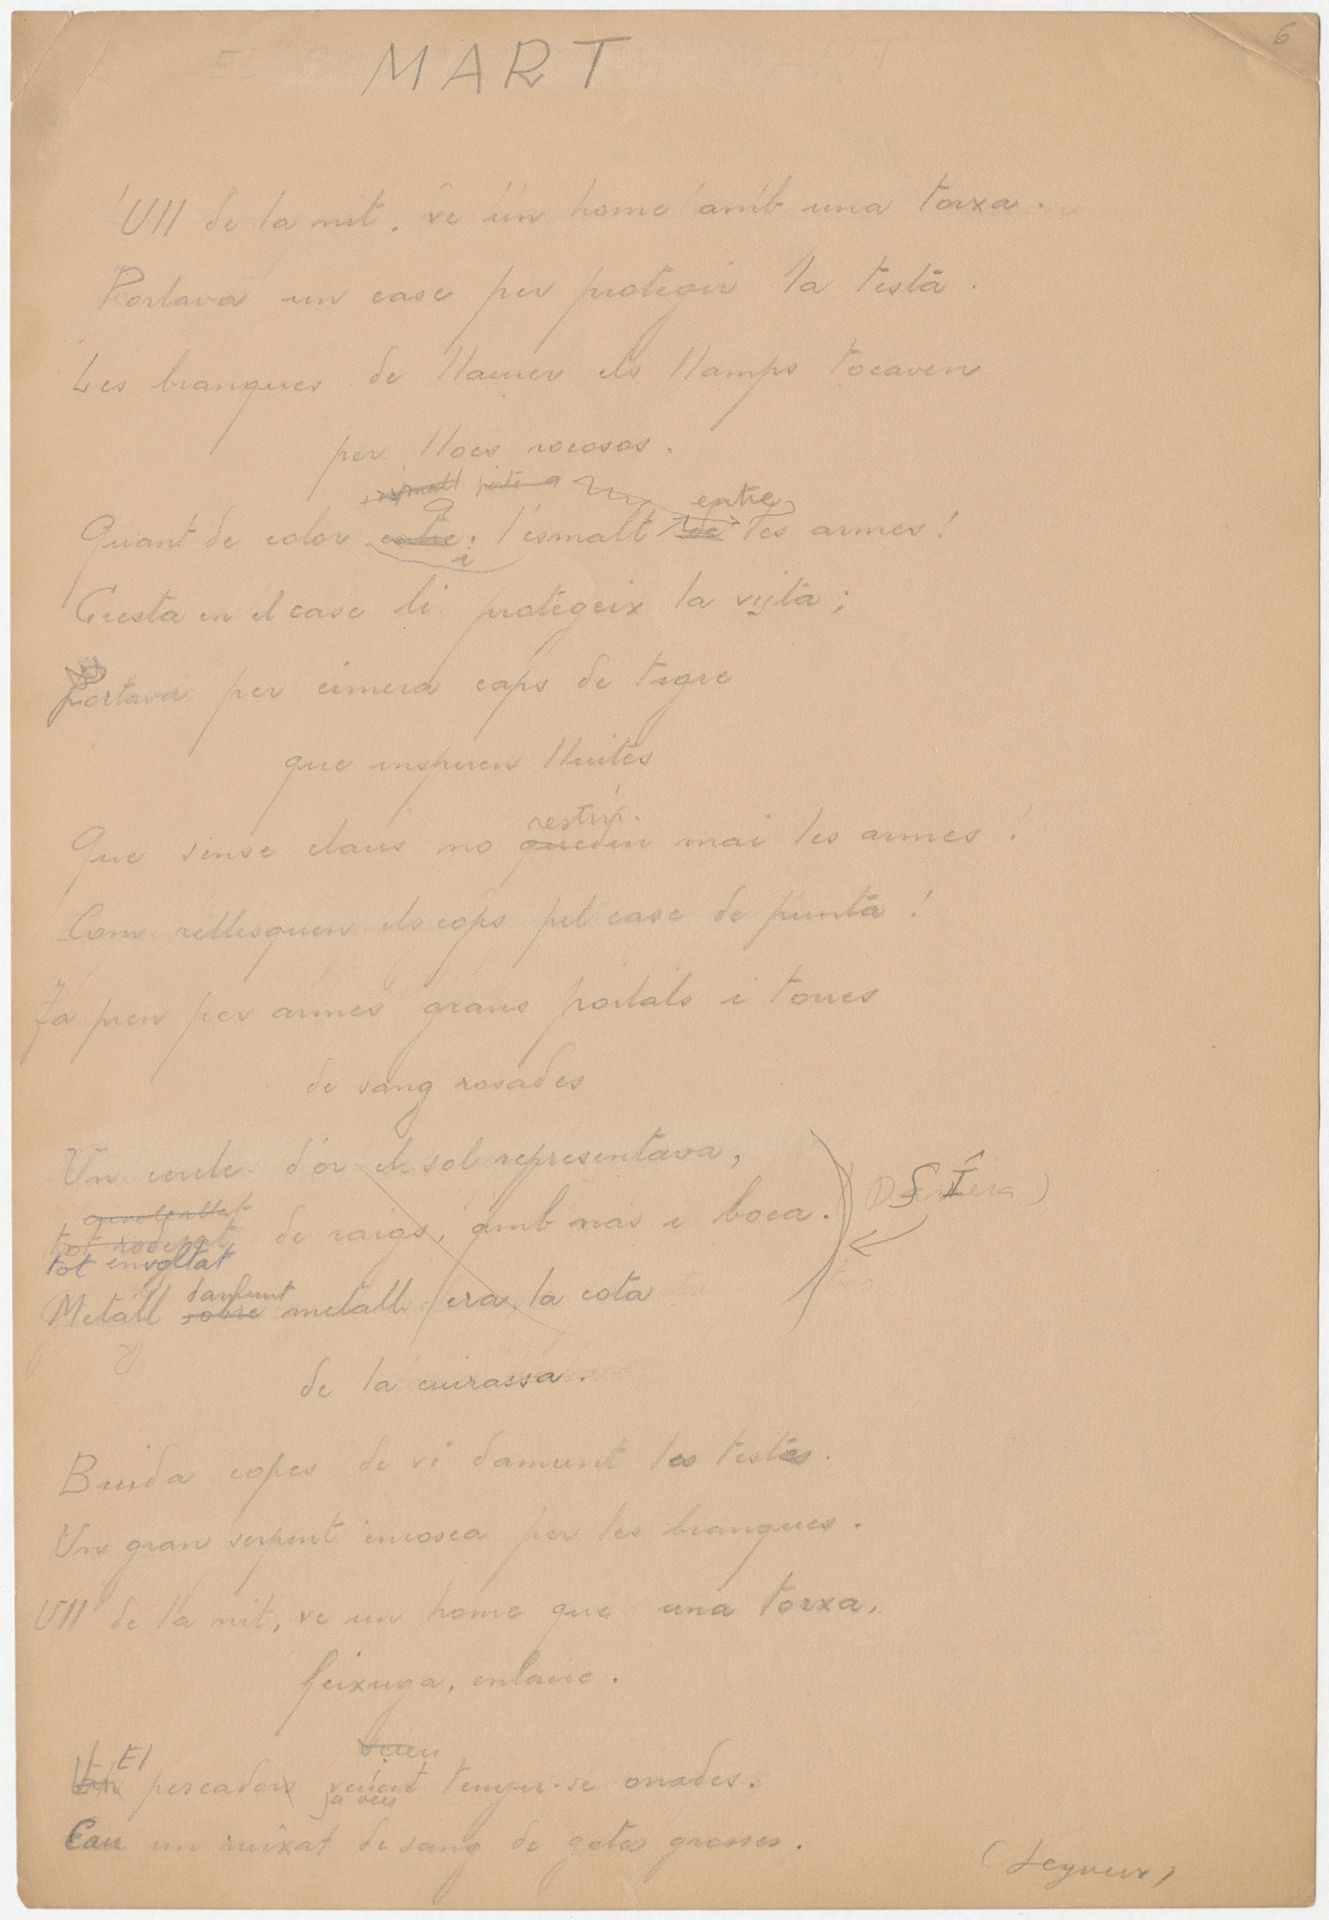 6
MART
Ull de la nit. ve un home amb una torxa.
Portava un casc per protegir la testa.
Les branques de llaurer els llamps tocaven
per llocs rocosos.
entre
Quant de color entre i l'esmalt de les armes!
Cresta en el casc li protegeix la vista;
Portava per cimera caps de tigre
que inspiren lluites
restin.
Que sense claus no queden mai les armes!
Com rellisquen els cops pel casc de punta!
Ja pren per armes grans portals i torres
de sang rosades
Un cercle d'or el sol representava,
SÍ
tot rodejat de raigs, amb nas i boca.
tot envoltat
damunt
Metall sobre metall era la cota
de la cuirassa.
Buida copes de vi damunt les testes.
Un gran serpent enrosca per les branques.
Ull de la nit, ve un home que una torxa,
feixuga, enlaire.
veien
El pescadors tenyir-se onades.
ja veu
Cau un ruixat de sang de gotes grosses.
(Segueix)